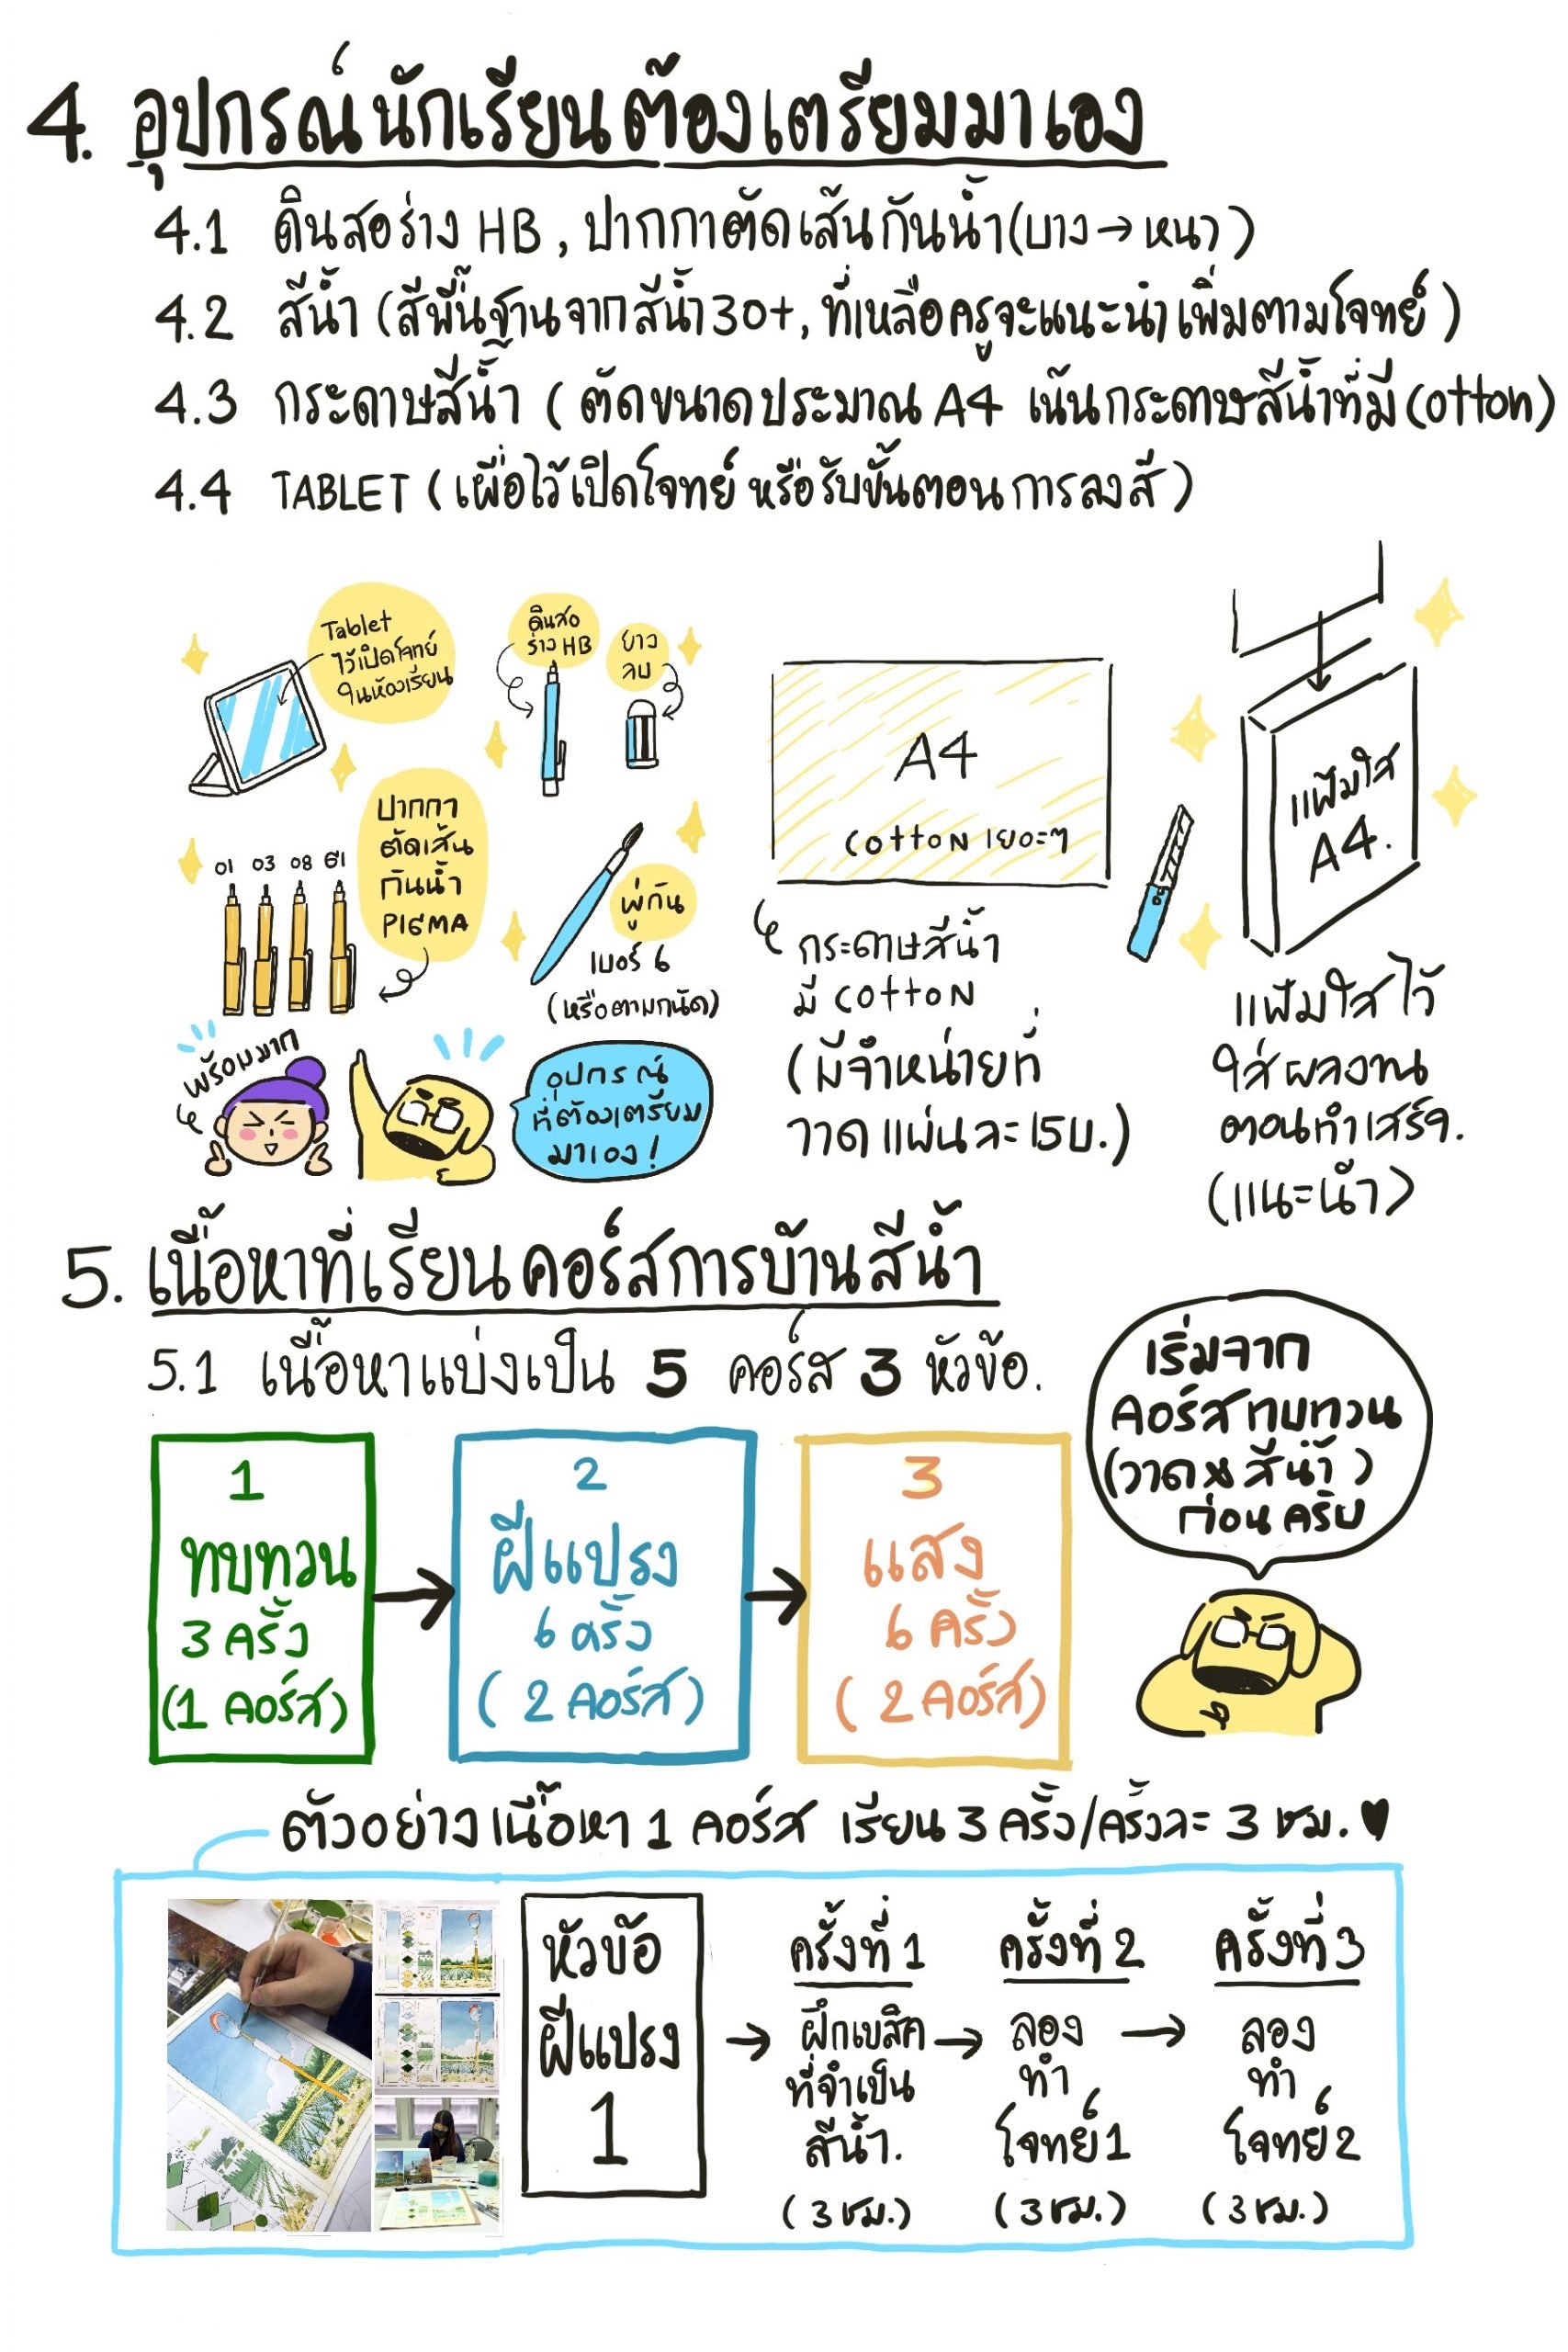 4. อุปกรณ์นักเรียนต้องเตรียมมาเอง
4.1 ดินสอร่าง HB, ปากกาตัดเส้นกันน้ำ(บาง→หนา)
4.2 สีน้ำ (สีพื้นฐานจากสีน้ำ30+, ที่เหลือครูจะแนะนำเพิ่มตามโจทย์)
4.3 กระดาษสีน้ำ (ตัดขนาดประมาณ A4 เน้นกระดาษสีน้ำที่มี cotton)
4.4 TABLET (เผื่อไว้เปิดโจทย์ หรือรับขั้นตอนการลงสี)
Tablet
ไว้เปิดโจทย์
ในห้องเรียน
ดินสอ
ร่าง HB
ยาง
ลบ
01 03 08
ปากกา
ตัดเส้น
กันน้ำ
PIGMA
พู่กัน
เบอร์ 6
(หรือตามถนัด)
A4
cotton เยอะๆ
กระดาษสีน้ำ
มี cotton
(มีจำหน่ายที่
วาด แผ่นละ 15บ.)
แฟ้มใส
A4.
แฟ้มใสไว้
ใส่ผลงาน
ตอนทำเสร็จ.
(แนะนำ)
พร้อมมาก
อุปกรณ์
ที่ต้องเตรียม
มาเอง!
5. เนื้อหาที่เรียนคอร์สการบ้านสีน้ำ
5.1 เนื้อหาแบ่งเป็น 5 คอร์ส 3 หัวข้อ.
เริ่มจาก
คอร์สทบทวน
(วาดxสีน้ำ)
ก่อนครับ
1
ทบทวน
3 ครั้ง
(1 คอร์ส)
→
2
ฝีแปรง
6 ครั้ง
(2 คอร์ส)
→
3
แสง
6 ครั้ง
(2 คอร์ส)
ตัวอย่างเนื้อหา 1 คอร์ส เรียน 3 ครั้ง/ครั้งละ 3 ชม.♥
หัวข้อ
ฝีแปรง
1
→
ครั้งที่ 1
ฝึกเบสิค
ที่จำเป็น
สีน้ำ.
(3 ชม.)
→
ครั้งที่ 2
ลอง
ทำ
โจทย์1
(3 ชม.)
→
ครั้งที่ 3
ลอง
ทำ
โจทย์2
(3 ชม.)